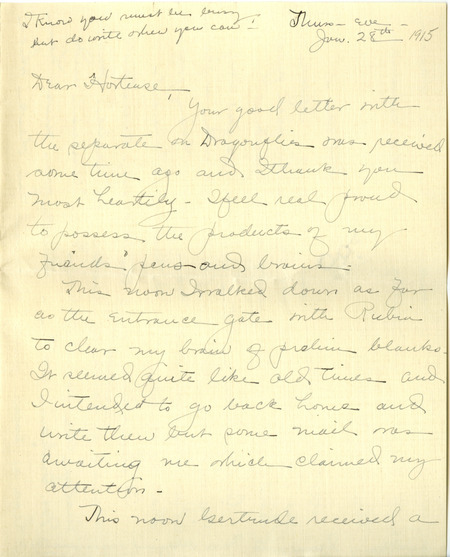 I know you must be busy
but do write when you can!
Thurs - eve -
Jan. 28th 1915
Dear Hortense,
Your good letter with
the separate on Dragonflies was received
some time ago and I thank you
most heartily - I feel real proud
to possess the products of my
friends' pens and brains.
This noon I walked down as far
as the Entrance gate with Rubin
to clear my brain of prelim blanks.
It seemed quite like old times and
I intended to go back home and
write then but some mail was
awaiting me which claimed my
attention -
This noon Gertrude received a